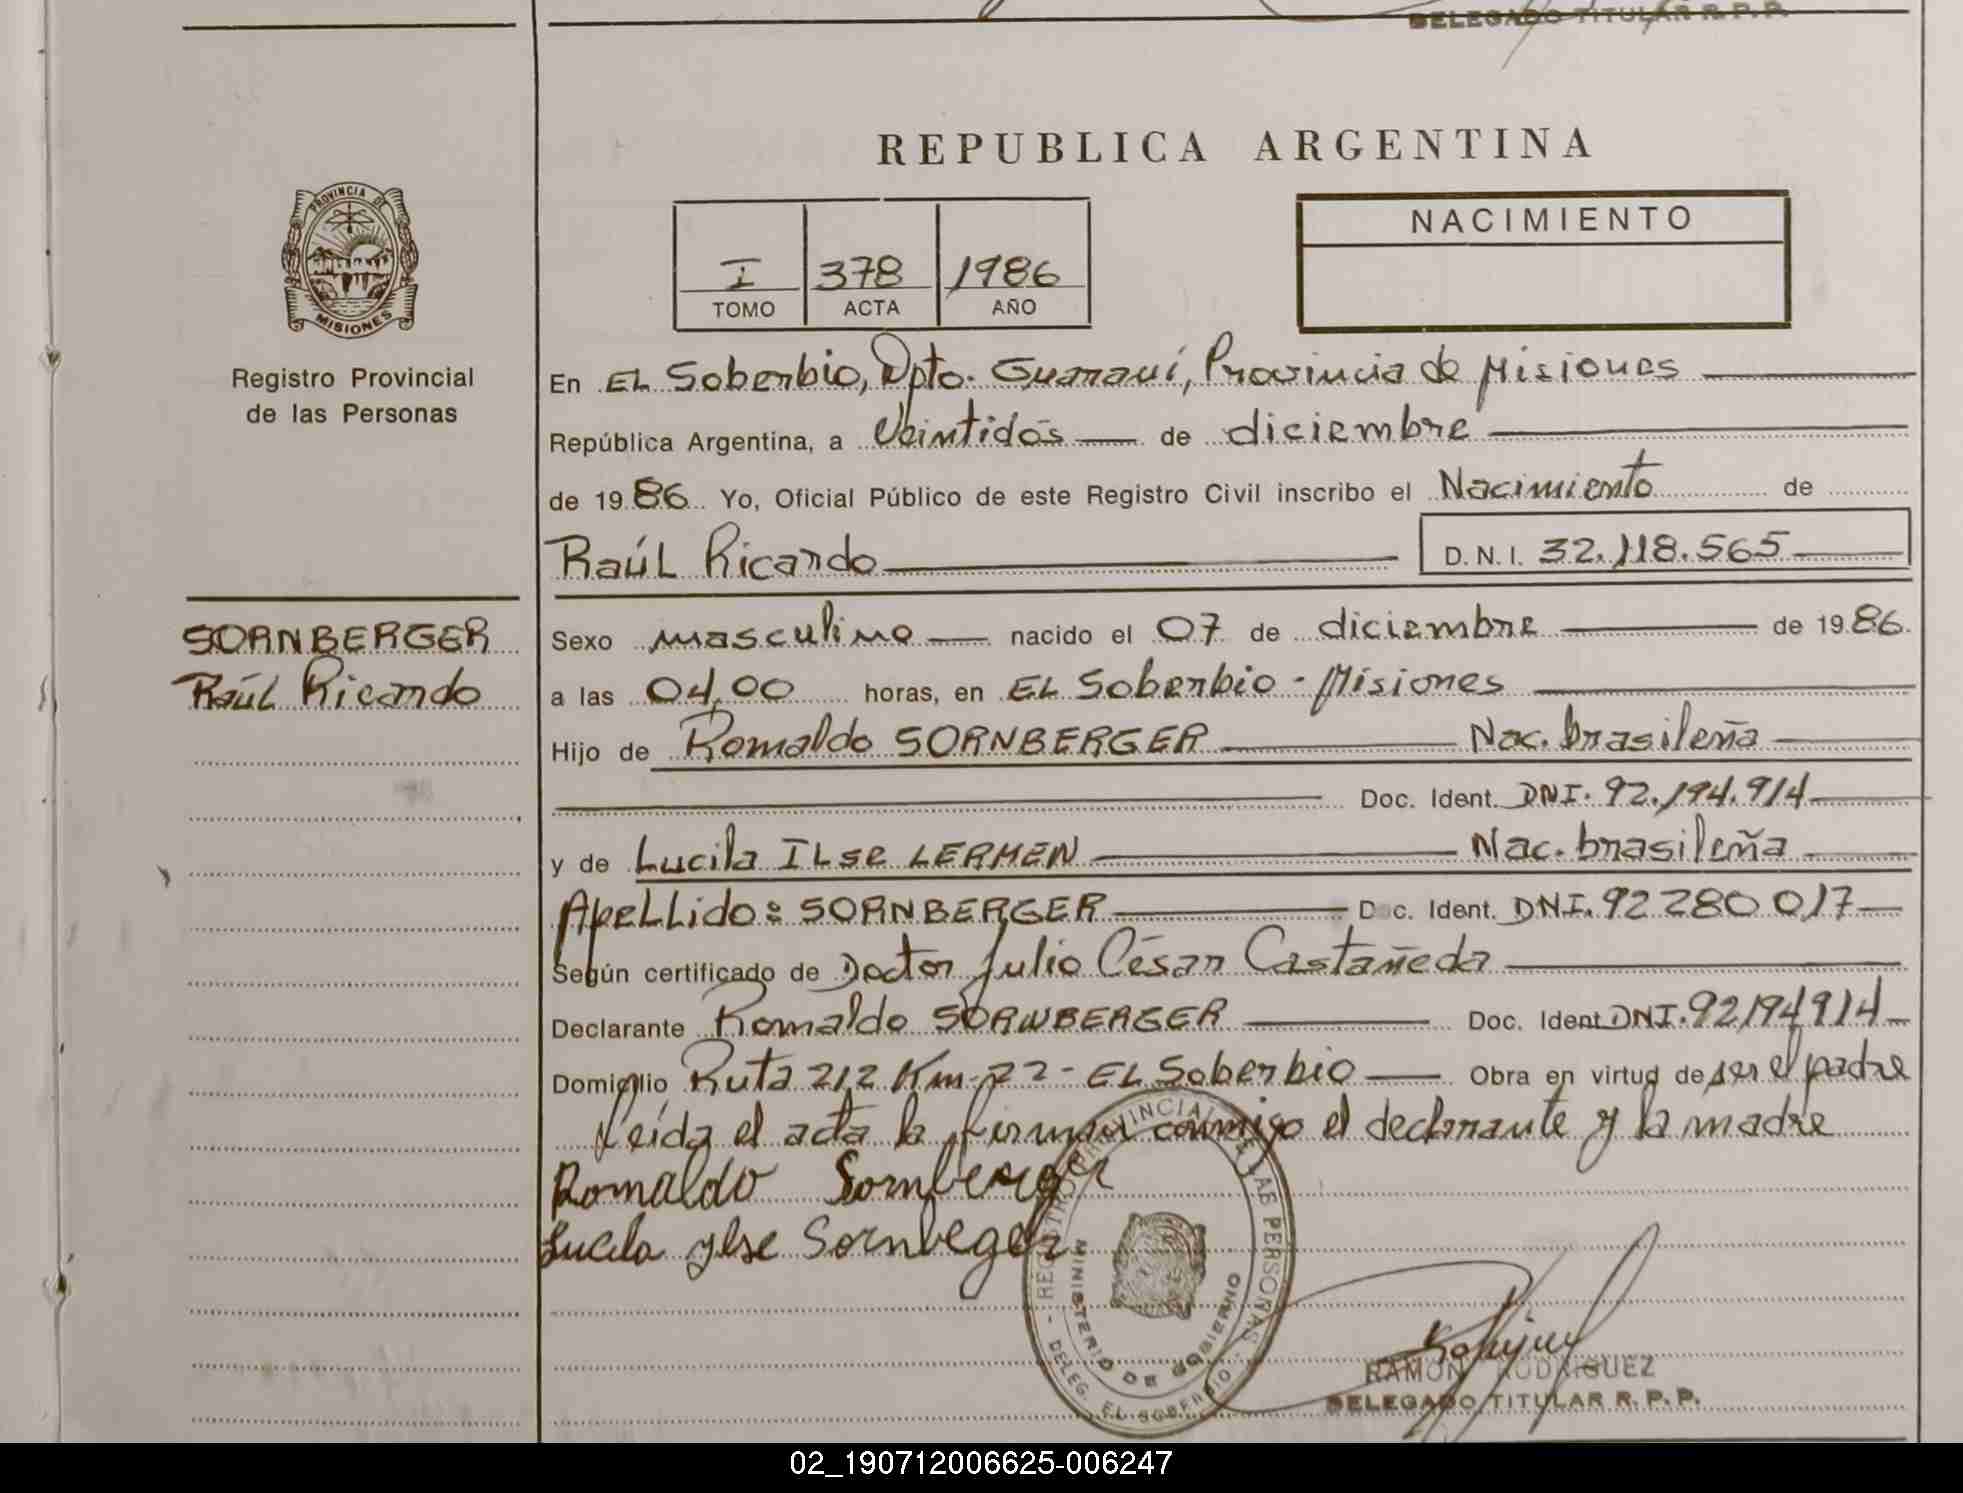 DELEGADO TITULAR R.P.P.
REPUBLICA ARGENTINA
PROVINCIA DE
MISIONES
Registro Provincial
de las Personas
I 378 1986
TOMO ACTA AÑO
NACIMIENTO
En EL Soberbio, Dpto. Guaraní, Provincia de Misiones
República Argentina, a Veintidós de diciembre
de 1986 Yo, Oficial Público de este Registro Civil inscribo el Nacimiento de
Raúl Ricardo D.N.I. 32.118.565
SORNBERGER
Raúl Ricardo
Sexo masculino nacido el 07 de diciembre de 1986.
a las 04,00 horas, en EL Soberbio - Misiones
Hijo de Romaldo SORNBERGER Nac. brasileña
Doc. Ident. DNI. 92.194.914
y de Lucila ILse LERMEN Nac. brasileña
ApeLLido: SORNBERGER Doc. Ident. DNI. 92 280 017
Según certificado de Doctor Julio César Castañeda
Declarante Romaldo SORNBERGER Doc. Ident. DNI. 92194914
Domicilio Ruta 212 Km-22- EL Soberbio Obra en virtud de ser el padre
Leída el acta la firman conmigo el declarante y la madre
Romaldo Sornberger
Lucila ylse Sornbeger
REGISTRO PROVINCIAL DE LAS PERSONAS
MINISTERIO DE GOBIERNO
DELEG. EL SOBERBIO
RAMON RODRIGUEZ
DELEGADO TITULAR R.P.P.
02_190712006625-006247